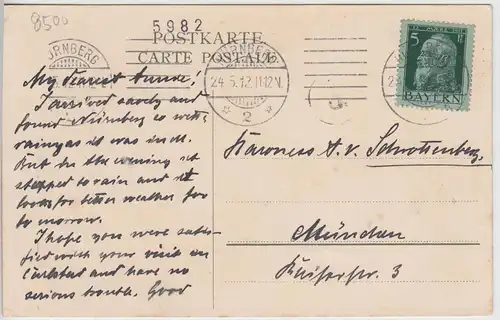 8500
5982
POSTKARTE
CARTE POSTALE
NÜRNBERG
24.5.12.11-12V.
2
5 Pf
BAYERN
My dearest
I arrived safely and
found Nürnberg so
raining as it was in M.
But in the evening it
stopped to rain and it
looks for better weather for
to morrow.
I hope you were satis-
fied with your visit in
Carlstad and have no
serious trouble. Good
Baroness A. v. Schrottenberg,
München
Kaiserstr. 3